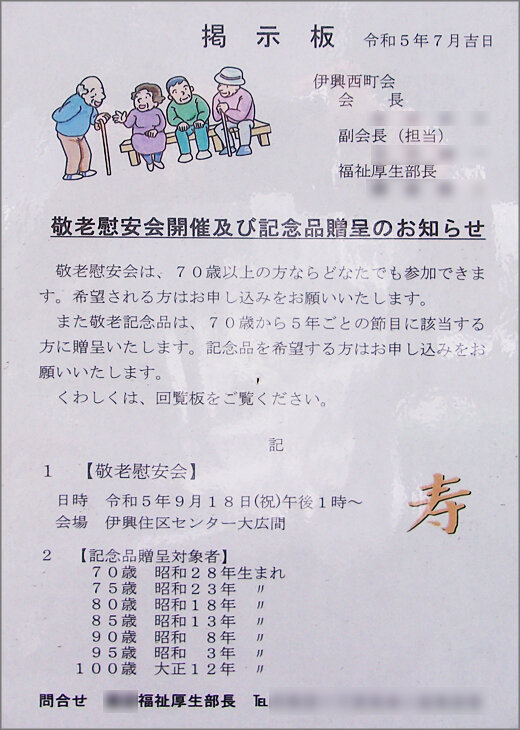 掲示板 令和5年7月吉日
伊興西町会
会　長
副会長（担当）
福祉厚生部長
敬老慰安会開催及び記念品贈呈のお知らせ
敬老慰安会は、７０歳以上の方ならどなたでも参加できま
す。希望される方はお申し込みをお願いいたします。
また敬老記念品は、７０歳から５年ごとの節目に該当する
方に贈呈いたします。記念品を希望する方はお申し込みをお
願いいたします。
くわしくは、回覧板をご覧ください。
記
１　【敬老慰安会】
日時　令和５年９月１８日(祝)午後１時～
会場　伊興住区センター大広間
寿
２　【記念品贈呈対象者】
７０歳　昭和２８年生まれ
７５歳　昭和２３年　〃
８０歳　昭和１８年　〃
８５歳　昭和１３年　〃
９０歳　昭和　８年　〃
９５歳　昭和　３年　〃
１００歳　大正１２年　〃
問合せ　福祉厚生部長　℡